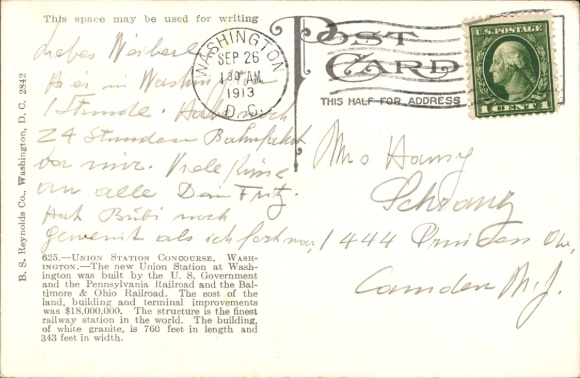 This space may be used for writing
POST CARD
THIS HALF FOR ADDRESS
WASHINGTON
SEP 26
1 30 AM
1913
D. C.
U.S. POSTAGE
1 CENT 1
B. S. Reynolds Co., Washington, D. C. 2842
Liebes Weiberl
Hier in Washington
1 Stunde. Habe noch
24 Stunden Bahnfahrt
vor mir. Viele Küsse
an alle Dein Fritz.
Hat Bubi noch
geweint als ich fort war,
Mrs Hansy
Schwang
1444 Ave,
Camden N.J.
625.—UNION STATION CONCOURSE, WASH-
INGTON.—The new Union Station at Wash-
ington was built by the U. S. Government
and the Pennsylvania Railroad and the Bal-
timore & Ohio Railroad. The cost of the
land, building and terminal improvements
was $18,000,000. The structure is the finest
railway station in the world. The building,
of white granite, is 760 feet in length and
343 feet in width.